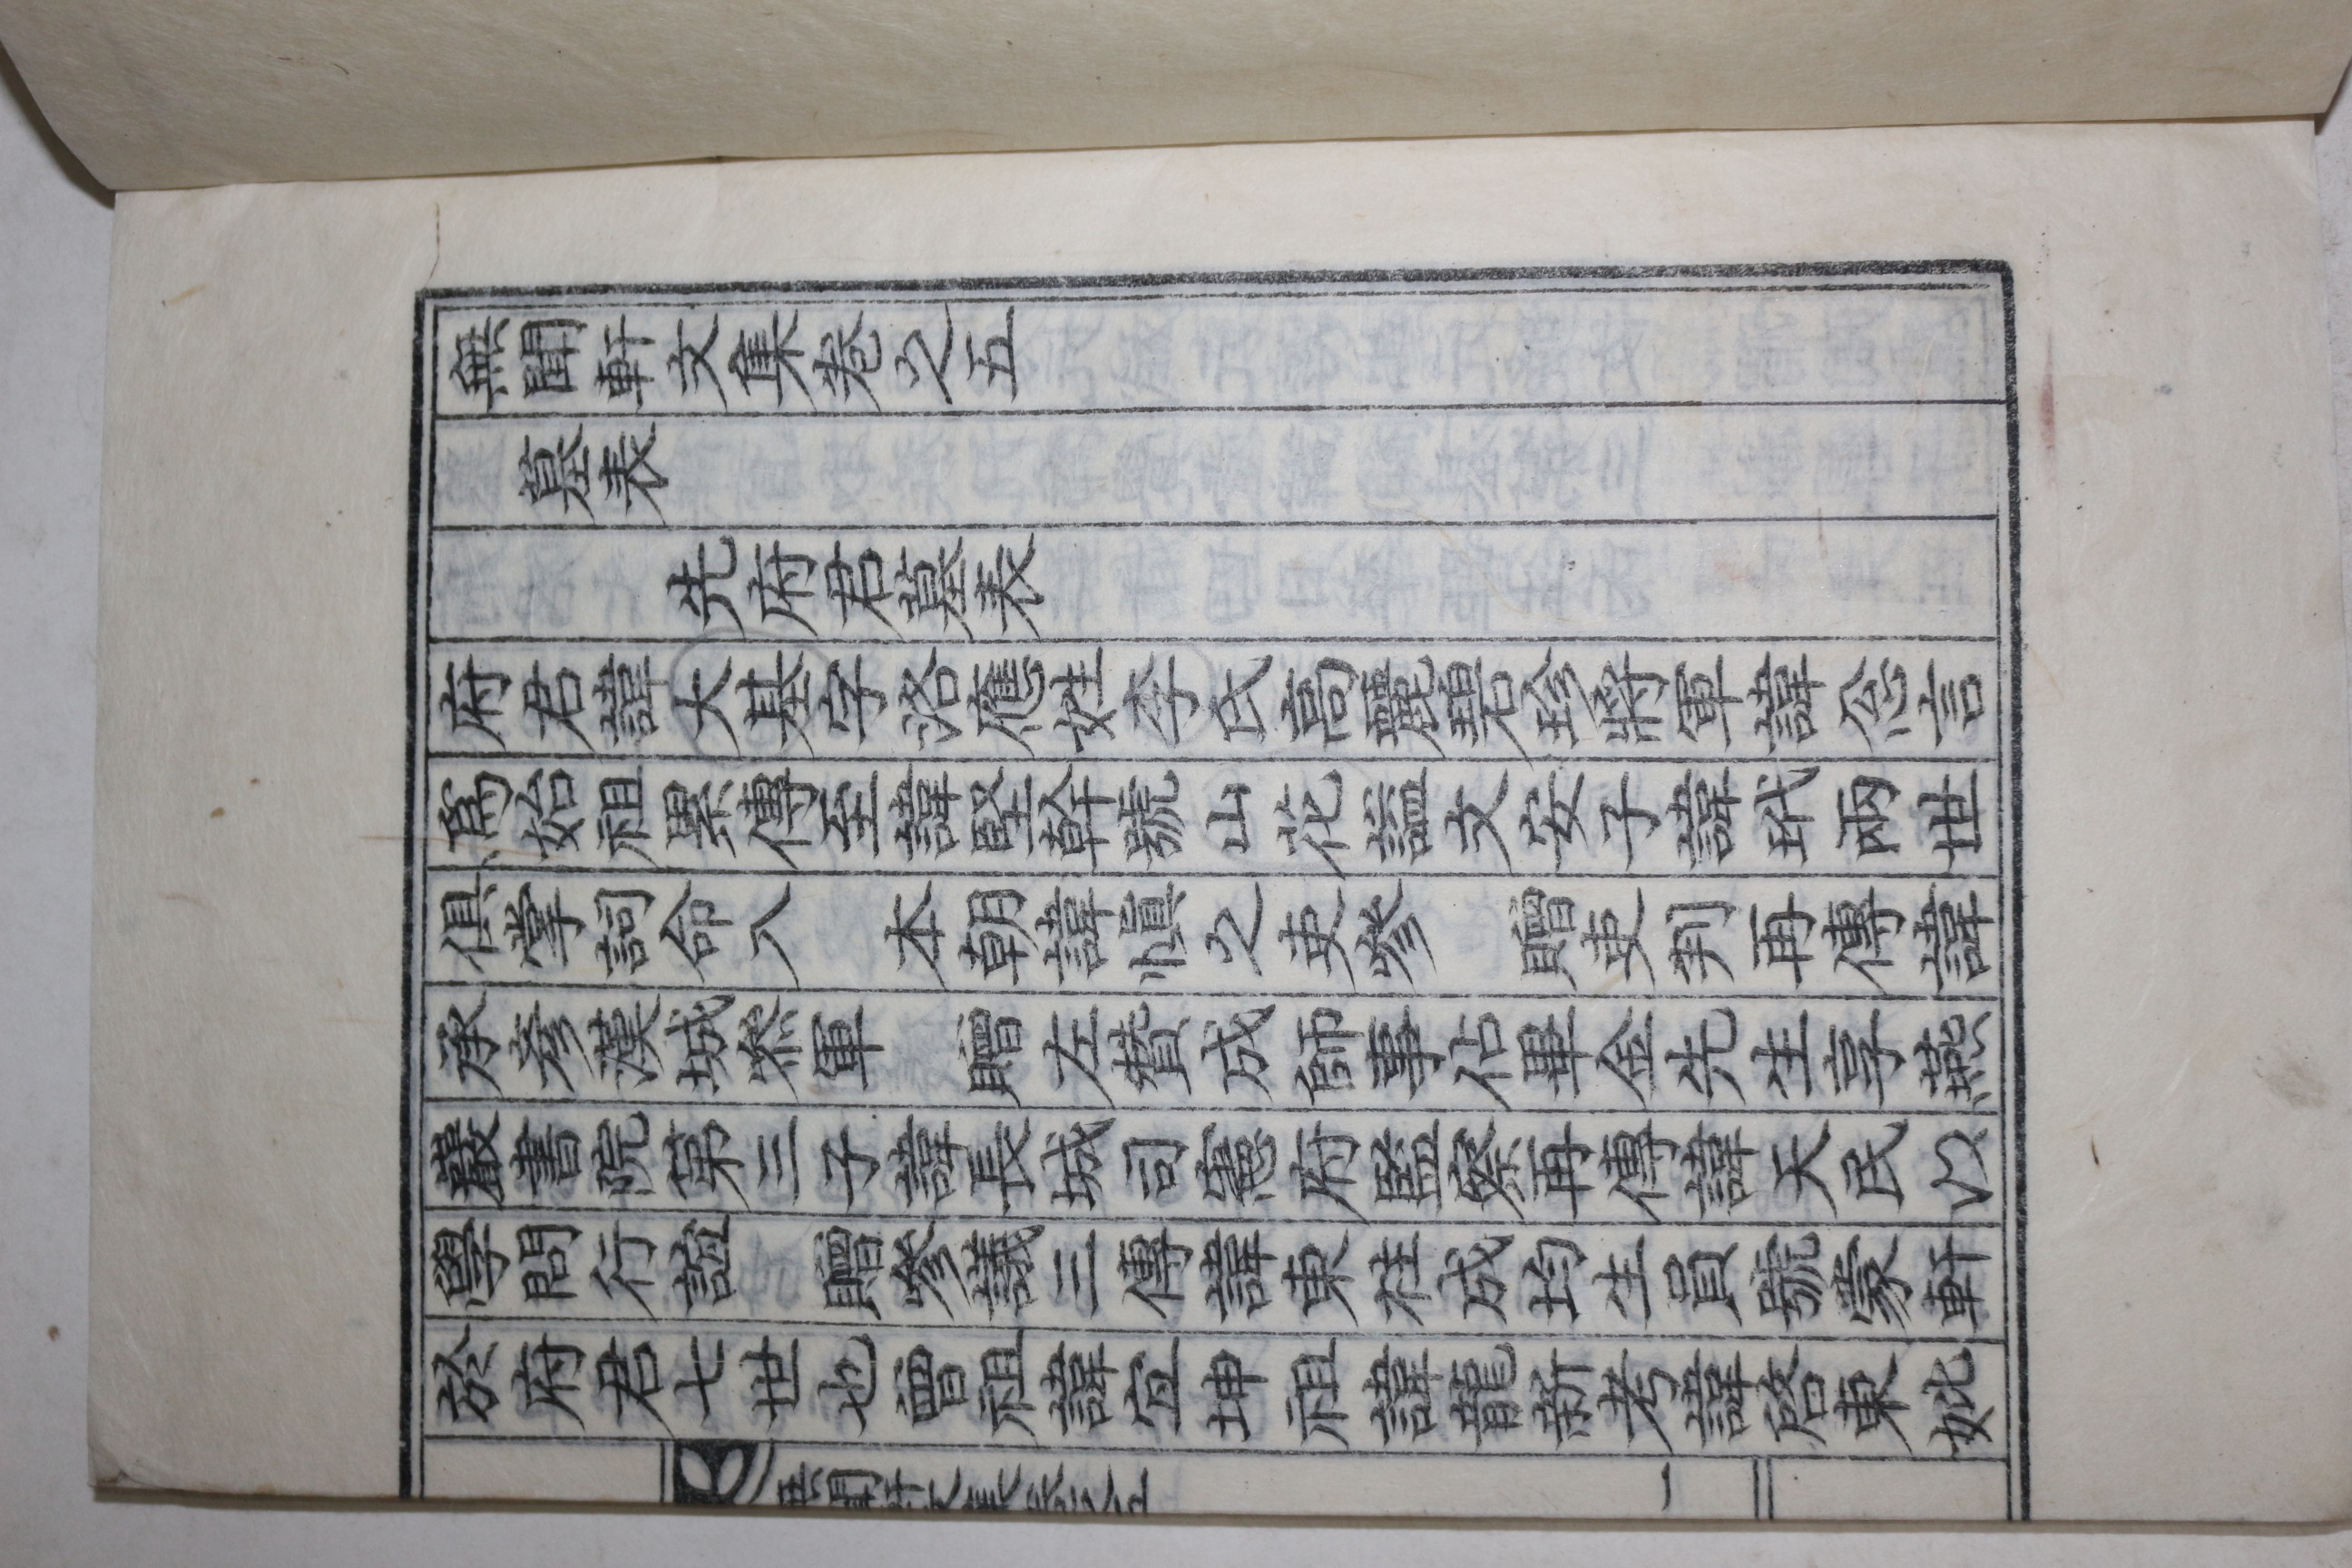 無聞軒文集卷之五
墓表
先府君墓表
府君諱大基字洛應姓李氏高麗碧珍將軍諱忩言
爲始祖累傳至諱堅幹號山花謚文安子諱玳兩世
俱掌詞命入 本朝諱愼之吏參 贈吏判再傳諱
承彥漢城叅軍 贈左贊成師事佔畢金先生享燕
巖書院第三子諱長城司憲府監察再傳諱天民以
學問行誼 贈參議三傳諱東柱成均生員號蒙軒
於府君七世也曾祖諱宜坤祖諱龍新考諱啓東妣
無聞軒文集卷之五
一